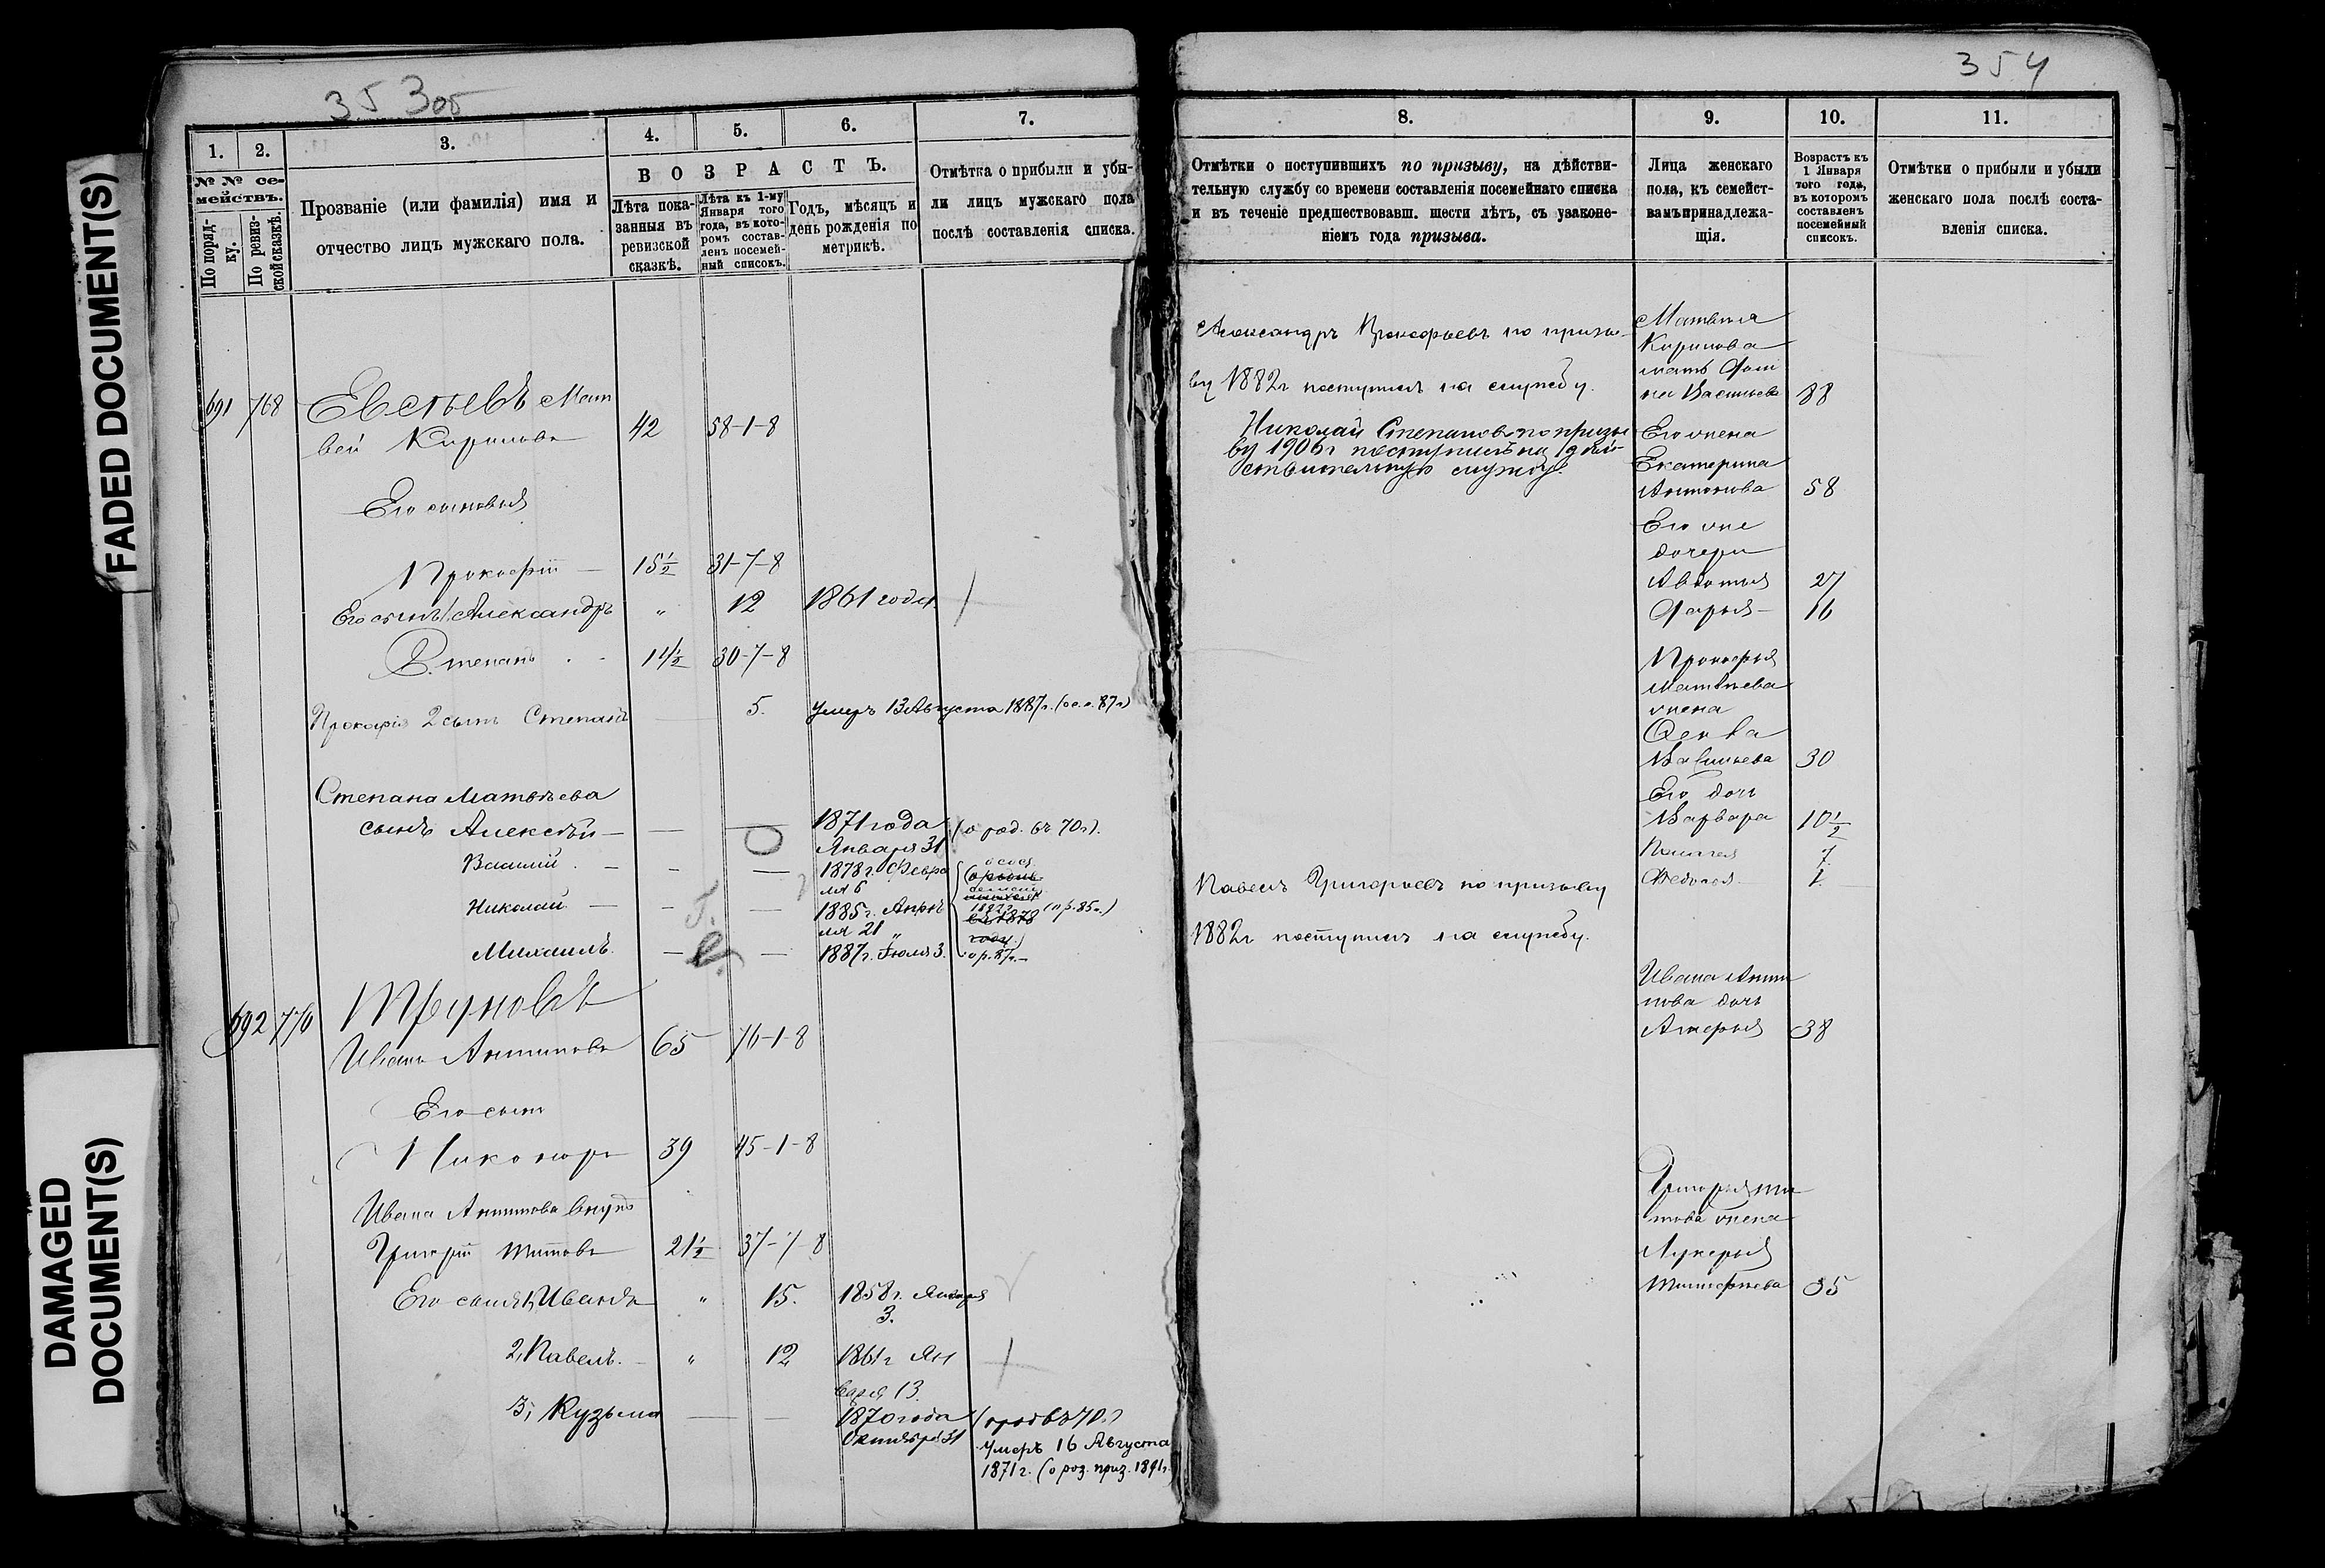 FADED DOCUMENT(S)
DAMAGED
DOCUMENT(S)
353об
1.
2.
3.
4.
5.
6.
7.
№ № се-
мействъ.
По поряд-
ку.
По ревиз-
ской сказкѣ.
Прозваніе (или фамилія) имя и
отчество лицъ мужскаго пола.
ВОЗРАСТЪ.
Лѣта пока-
занныя въ
ревизской
сказкѣ.
Лѣта къ 1-му
Января того
года, въ кото-
ромъ состав-
ленъ посемей-
ный списокъ.
Годъ, мѣсяцъ и
день рожденія по
метрикѣ.
Отмѣтка о прибыли и убы-
ли лицъ мужскаго пола
послѣ составленія списка.
691 768 Евсѣевъ Мат
вей Кирилловъ 42 58-1-8
Его сыновья
Прокофій — 15½ 31-7-8
Его сынъ Александръ " 12 1861 года
Степанъ 14½ 30-7-8
Прокофія 2 сынъ Степанъ — 5. Умеръ 13 Августа 1887г.
Степана Матвѣева
сынъ Алексѣй — — — 1871 года (о род. 6ч 70г).
Января 31
Василий — - — 1878г. Февра
ля 6
Николай — - — 1885г. Апрѣ (о р. 85г.)
ля 21
Михаилъ. — — 1887г. Іюля 3. о р. 87г. —
692 770 Труновъ
Иванъ Антиповъ 65 76-1-8
Его сынъ
Никоноръ 39 45-1-8
Ивана Антипова внукъ
Григорій Титовъ 21½ 37-7-8
Его сыня 1, Иванъ " 15. 1858г. Января
3.
2, Павелъ. — " 12 1861г Ян
варя 13.
3, Кузьма — — 1870 года
Октября 31
Умеръ 16 Августа
1871г. (о роз. приз. 1891г.
354
8.
9.
10.
11.
Отмѣтки о поступившихъ по призыву, на дѣйстви-
тельную службу со времени составленія посемейнаго списка
и въ теченіе предшествовавш. шести лѣтъ, съ узаконе-
ніемъ года призыва.
Лица женскаго
пола, къ семейст-
вамъ принадлежа-
щія.
Возрастъ къ
1 Января
того года,
въ которомъ
составленъ
посемейный
списокъ.
Отмѣтки о прибыли и убыли
женскаго пола послѣ соста-
вленія списка.
Александръ Прокофьевъ по призы-
ву 1882г поступилъ на службу.
Николай Степановъ по призы
ву 1906г поступилъ на дѣй-
ствительную службу.
Матвѣя
Кирилова
мать
Васильева 88
Его жена
Екатерина
Антонова 58
Его же
дочери
Авдотья 27
Дарья — 16
Прокофья
Матвѣева
жена
Васильева 30
Его дочь
Варвара 10½
Пелагея 7.
Федосья 1.
Павелъ Григорьевъ по призыву
1882г поступилъ на службу.
Ивана Анти
пова дочь
38
Григорья Ти
това жена
Лукерья
Тимофѣева 35